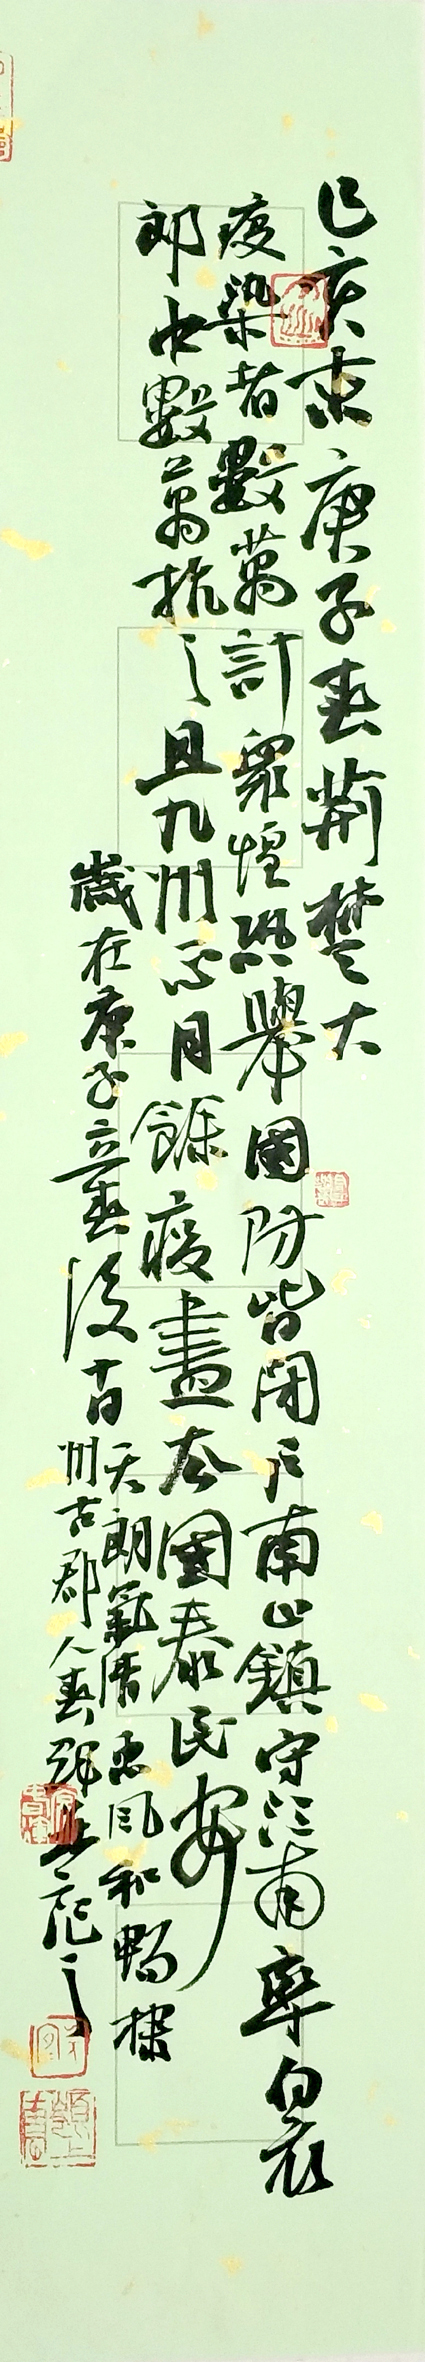 己亥末庚子春荊楚大
疫染者數萬計衆惶恐舉國防皆閉戶南山鎮守江南率白衣
郎中數萬抗之且九州一心月餘疫盡去國泰民安
歲在庚子立春後十日
天朗氣清惠風和暢棣
州古郡人春輝